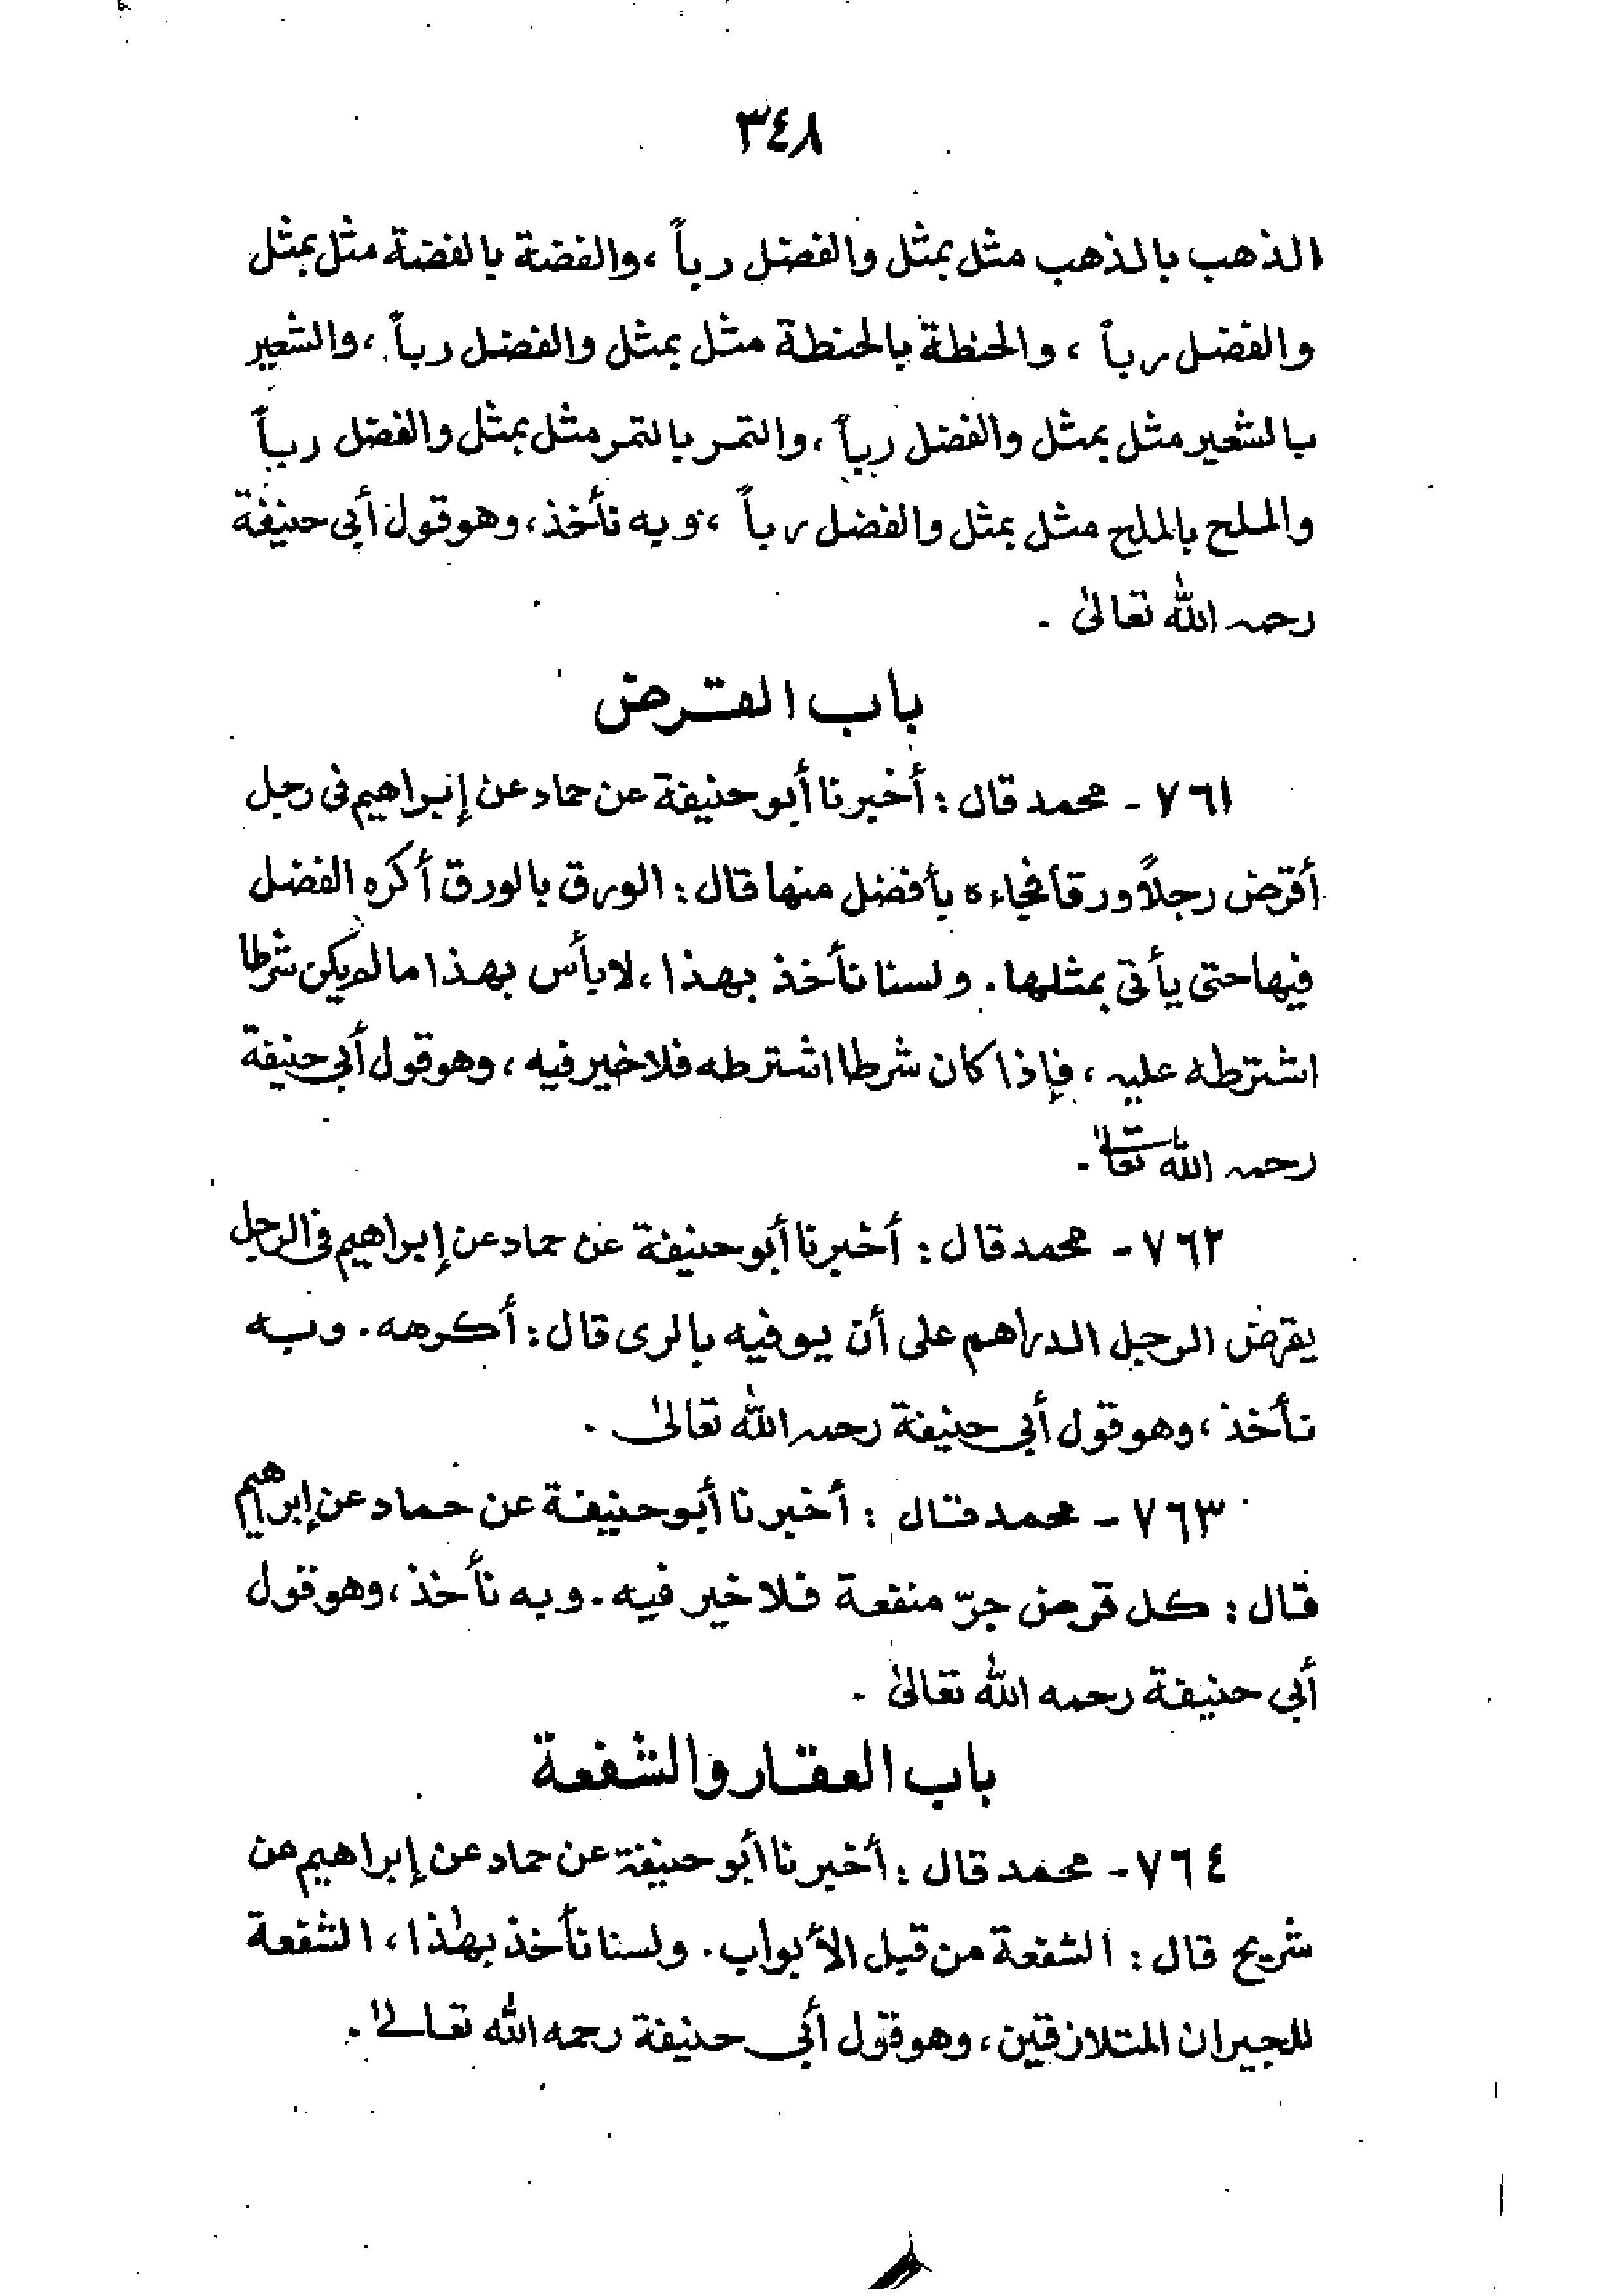 ٣٤٨
الذهب بالذهب مثل بمثل والفضل رباً ، والفضة بالفضة مثل بمثل
والفضل رباً ، والحنطة بالحنطة مثل بمثل والفضل رباً ، والشعير
بالشعير مثل بمثل والفضل رباً ، والتمر بالتمر مثل بمثل والفضل رباً
والملح بالملح مثل بمثل والفضل رباً ، وبه نأخذ ، وهو قول أبي حنيفة
رحمه الله تعالىٰ .
باب القرض
٧٦١ - محمد قال : أخبرنا أبو حنيفة عن حماد عن إبراهيم فى رجل
أقرض رجلاً ورقا فجاءه بأفضل منها قال : الورق بالورق أكره الفضل
فيها حتى يأتى بمثلها . ولسنا نأخذ بهذا ، لابأس بهذا ما لم يكن شرطا
اشترطه عليه ، فإذا كان شرطا اشترطه فلاخير فيه ، وهو قول أبي حنيفة
رحمه الله تعالىٰ .
٧٦٢ - محمد قال : أخبرنا أبو حنيفة عن حماد عن إبراهيم فى الرجل
يقرض الرجل الدراهم على أن يوفيه بالرى قال : أكرهه . وبه
نأخذ ، وهو قول أبي حنيفة رحمه الله تعالىٰ .
٧٦٣ - محمد قال : أخبرنا أبو حنيفة عن حماد عن إبراهيم
قال : كل قرض جرّ منفعة فلا خير فيه . وبه نأخذ ، وهو قول
أبي حنيفة رحمه الله تعالىٰ .
باب العقار والشفعة
٧٦٤ - محمد قال : أخبرنا أبو حنيفة عن حماد عن إبراهيم عن
شريح قال : الشفعة من قبل الأبواب . ولسنا نأخذ بهٰذا ، الشفعة
للجيران المتلازقين ، وهو قول أبي حنيفة رحمه الله تعالىٰ .